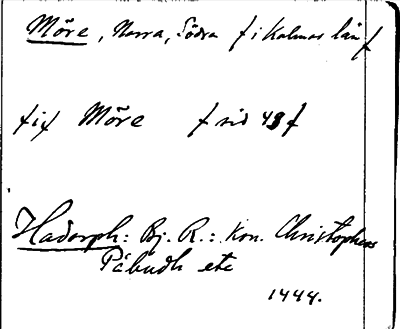 Möre, Norra, Södra f i Kalmar län f
f i f Möre f sid 43 f
Hadorph: Bj. R.: Kon. Christophers
Påbudh etc
1444.